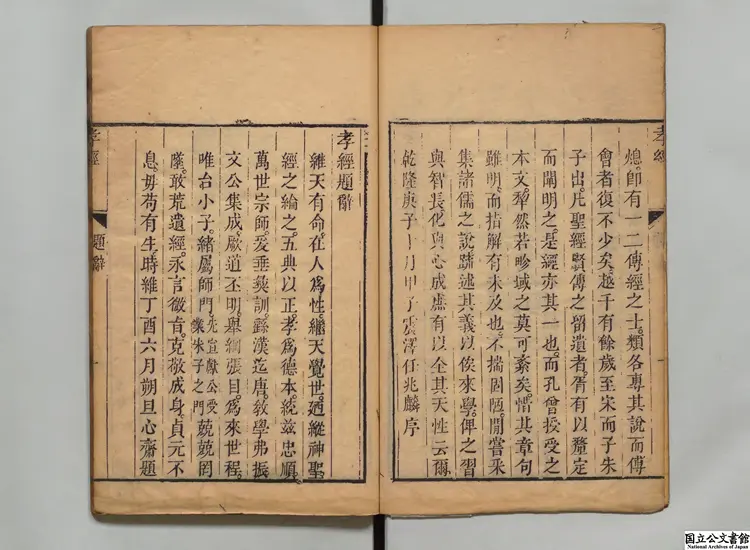 孝經
熄。卽有一二傳經之士。類各專其說而傳
會者復不少矣。越千有餘歲至宋而子朱
子出。凡聖經賢傳之留遺者。胥有以釐定
而闡明之。是經亦其一也。而孔曾授受之
本文。犁然若畛域之莫可紊矣。惜其章句
雖明。而指解有未及也。不揣固陋。閒嘗采
集諸儒之說。疏述其義以俟來學。俾之習
與智長。化與心成。盡有以全其天性云爾
乾隆庚子十月甲子雲澤任兆麟序
孝經題辭
維天有命。在人爲性。繼天覺世。迺縱神聖
經之綸之。五典以正。孝爲德本。統玆忠順。
萬世宗師。爰垂彝訓。繇漢迄唐。斆學弗振
文公集成。厥道丕明。舉綱張目。爲來世程。
唯台小子。緒屬師門。先宣獻公受業朱子之門兢兢罔
墜。敢荒遺經。永言微旨。克敬成身。貞元不
息。毋苟有生。時維丁酉六月朔旦心齋題
孝經
題辭
国立公文書館
National Archives of Japan